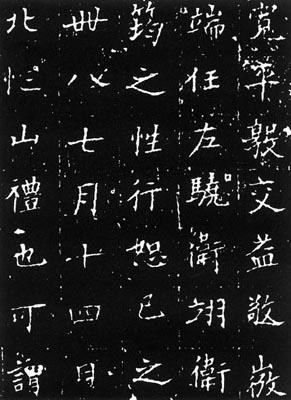 寬平毅交益敬
端任左驍衛翊衛
筠之性行恕己之
卌八七月十四日
北忙山禮也可謂